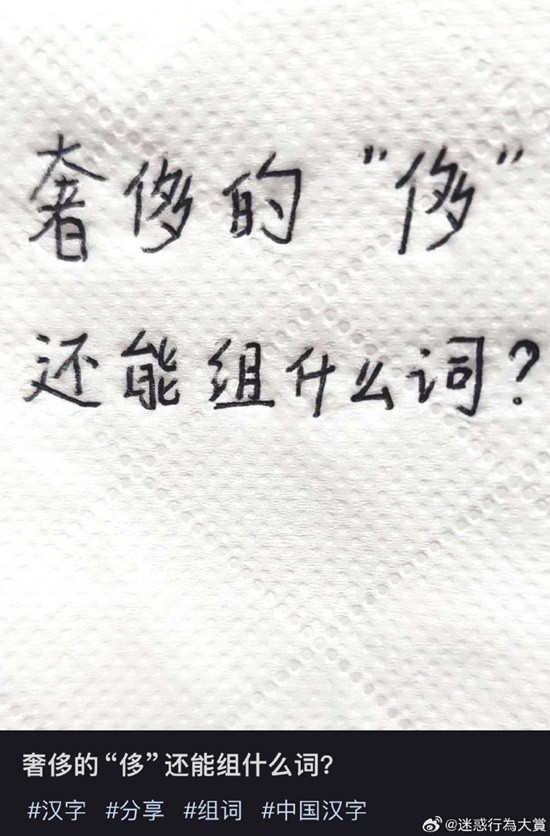 奢侈的"侈"
还能组什么词?
奢侈的“侈”还能组什么词？
#汉字 #分享 #组词 #中国汉字
@迷惑行為大賞